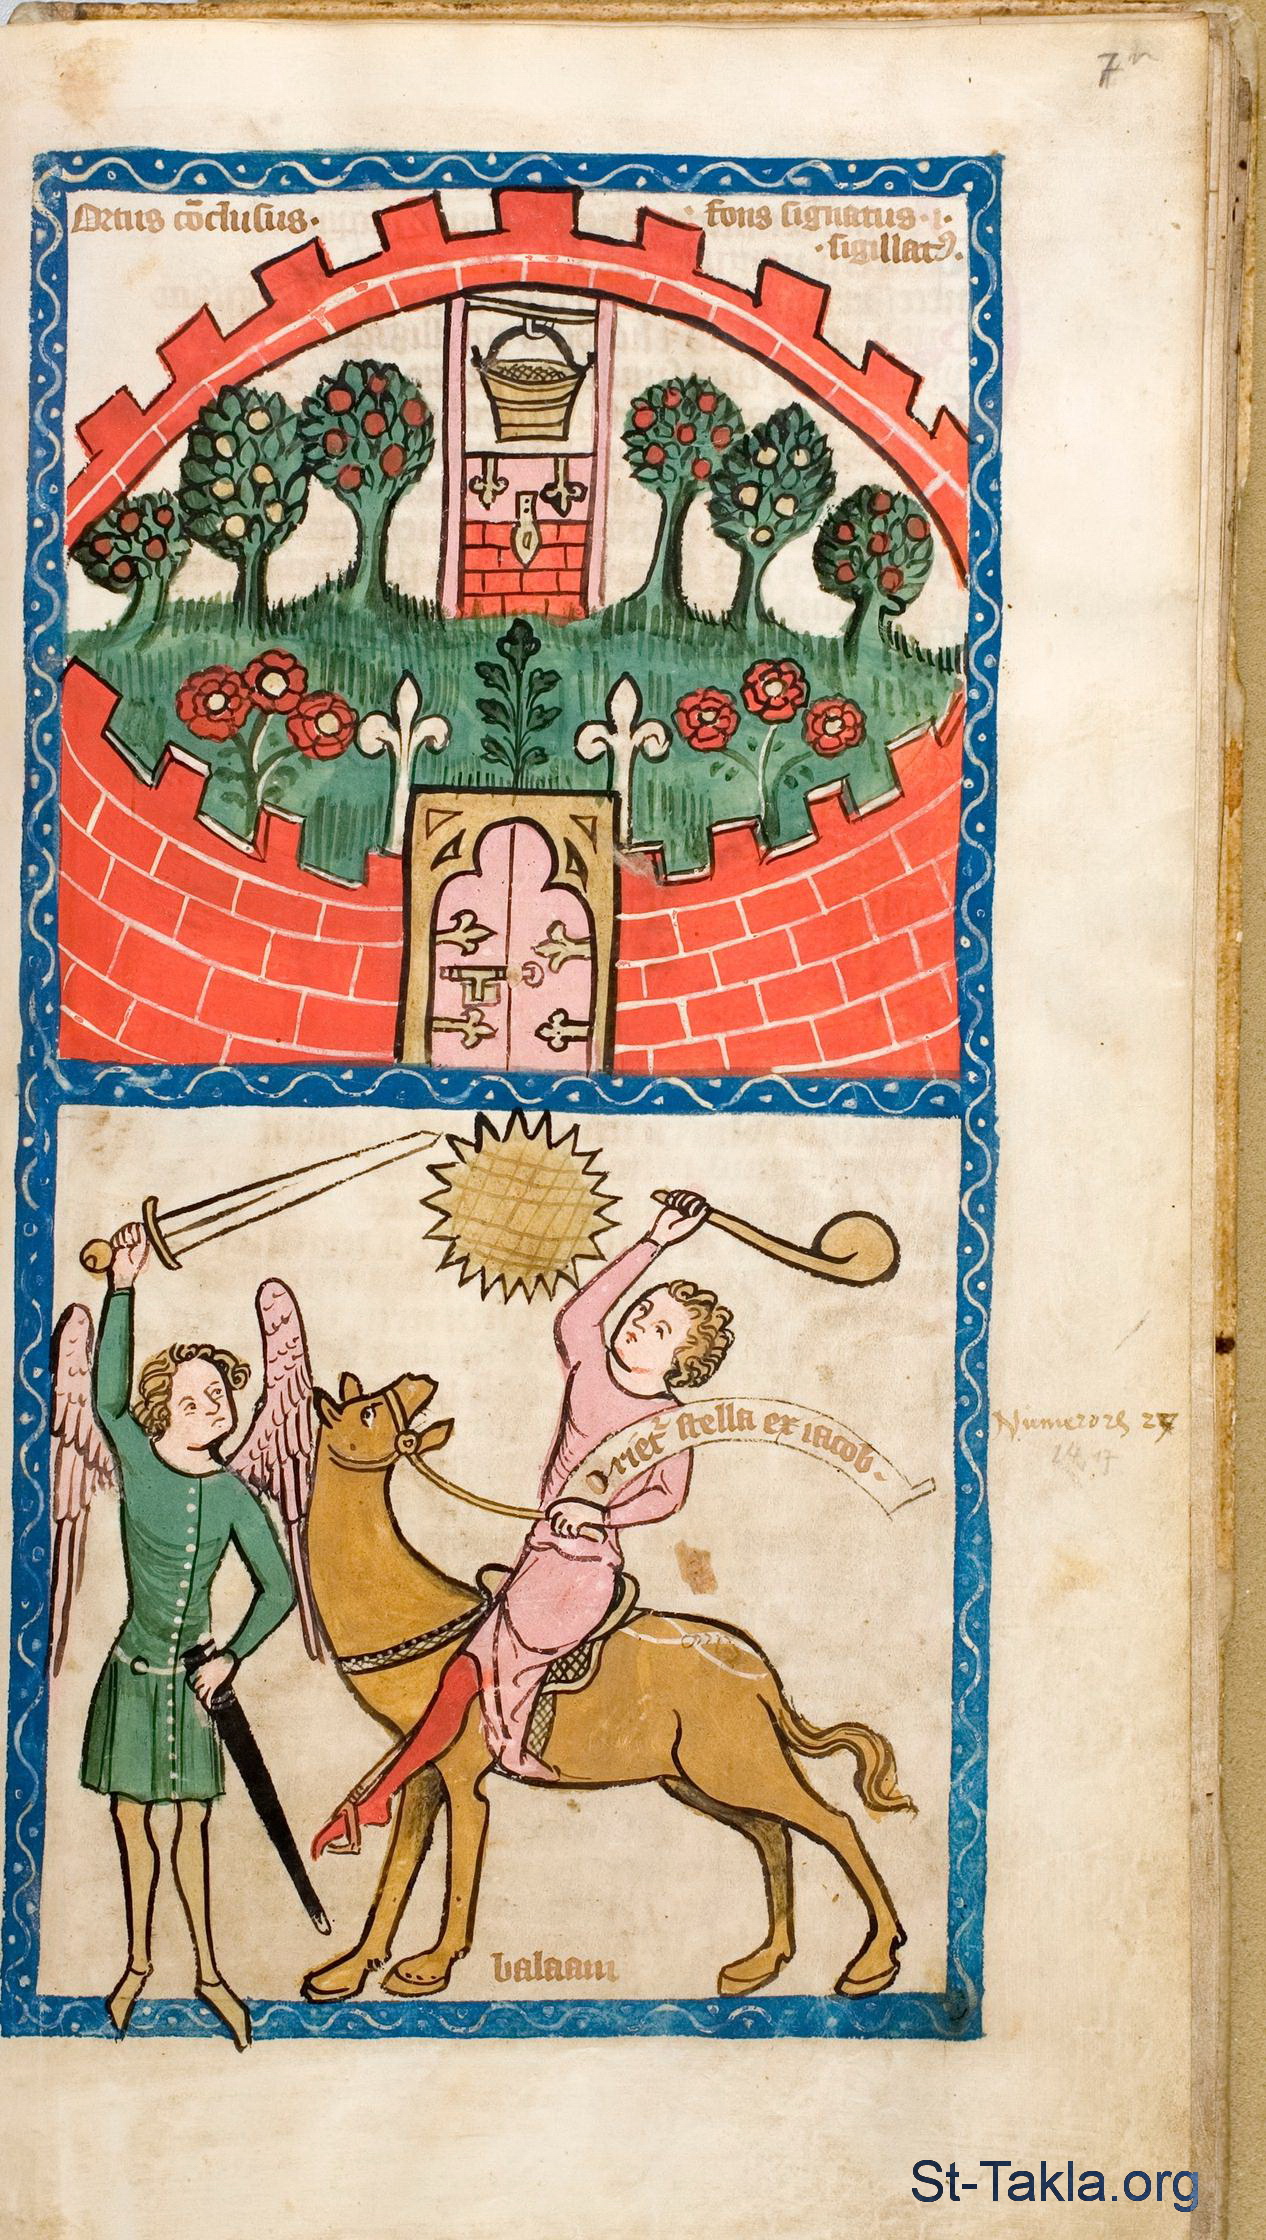 7
Ortus cōclusus·
fons signatus·i·
·sigillatꝰ.
Orietr̄ stella ex iacob·
Numeror
24 17
balaam
St-Takla.org